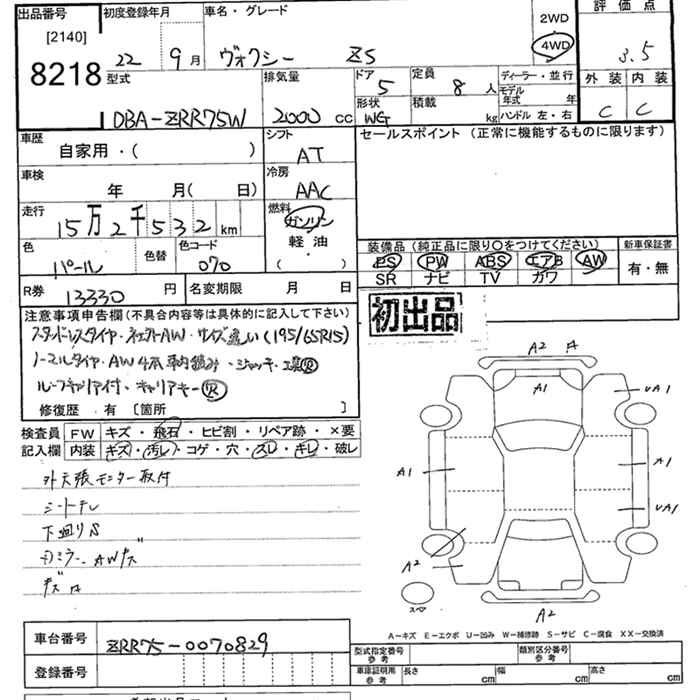 出品番号 初度登録年月 車名・グレード 2WD 評価点
[2140] 4WD
8218 22 9月 ヴォクシー ZS 3.5
型式 排気量 ドア 5 定員 8人 ディーラー・並行 外装 内装
モデル年式 年
DBA-ZRR75W 2000 cc 形状 WG 積載 kg ハンドル 左・右 C C
車歴 シフト セールスポイント(正常に機能するものに限ります)
自家用・( ) AT
車検 冷房
年 月( 日) AAC
走行 燃料
15万2千532km ガソリン
軽油
( )
色 色替 色コード 装備品(純正品に限り○をつけてください) 新車保証書
パール 070 PS PW ABS エアB AW 有・無
SR ナビ TV カワ
R券 13330円 名変期限 月 日
注意事項申告欄(不具合内容等は具体的に記入して下さい) 初出品
スタッドレスタイヤ・ AW・サイズ違い(195/65R15)
ノーマルタイヤ・AW4本車内積み・ジャッキ・工具Ⓡ
ルーフキャリア付・キャリアキーⓇ
修復歴 有 [箇所 ]
検査員 FW キズ・飛石・ヒビ割・リペア跡・×要
記入欄 内装 キズ・汚レ・コゲ・穴・スレ・キレ・破レ
外 張モニター取付
シートテレ
下廻りS
ミラー、AWキズ
キズA
A2 A
A1
UA1
A1
A1
UA1
A2
スペア
A2
A-キズ E-エクボ U-凹み W-補修跡 S-サビ C-腐食 XX-交換済
車台番号 ZRR75-0070829
型式指定番号 参考 類別区分番号 参考
登録番号 車庫証明用 参考 長さ cm 幅 cm 高さ cm